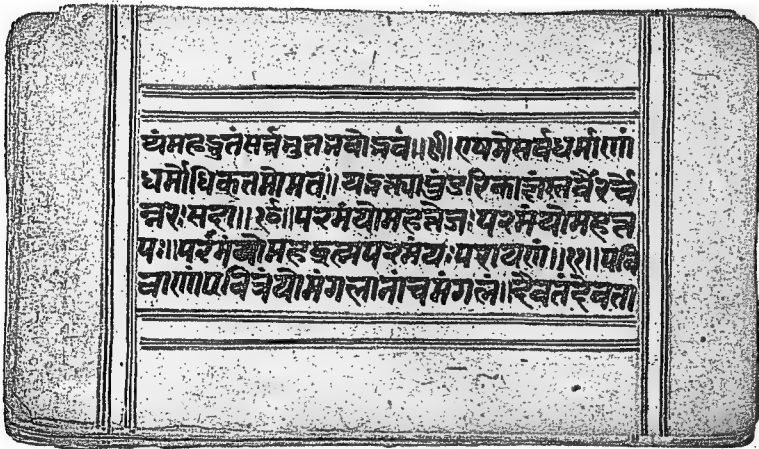 यंमहद्भुतंसर्वभुतभवोद्भवं॥७॥एषमेसर्वधर्माणां
धर्मोधिकतमोमतः॥यद्भक्त्यापुंडरिकाक्षंस्तवैरर्चे
न्नरःसदा॥८॥परमंयोमहत्तेजःपरमंयोमहत्त
पः॥परमंयोमहद्ब्रह्मपरमंयःपरायणं॥९॥पवि
त्राणांपवित्रंयोमंगलानांचमंगलं॥दैवतंदेवता